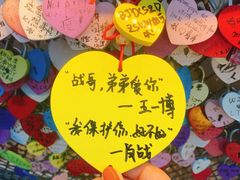 "战哥，弟弟爱你"
—王一博
"我保护你，好不好"
—肖战